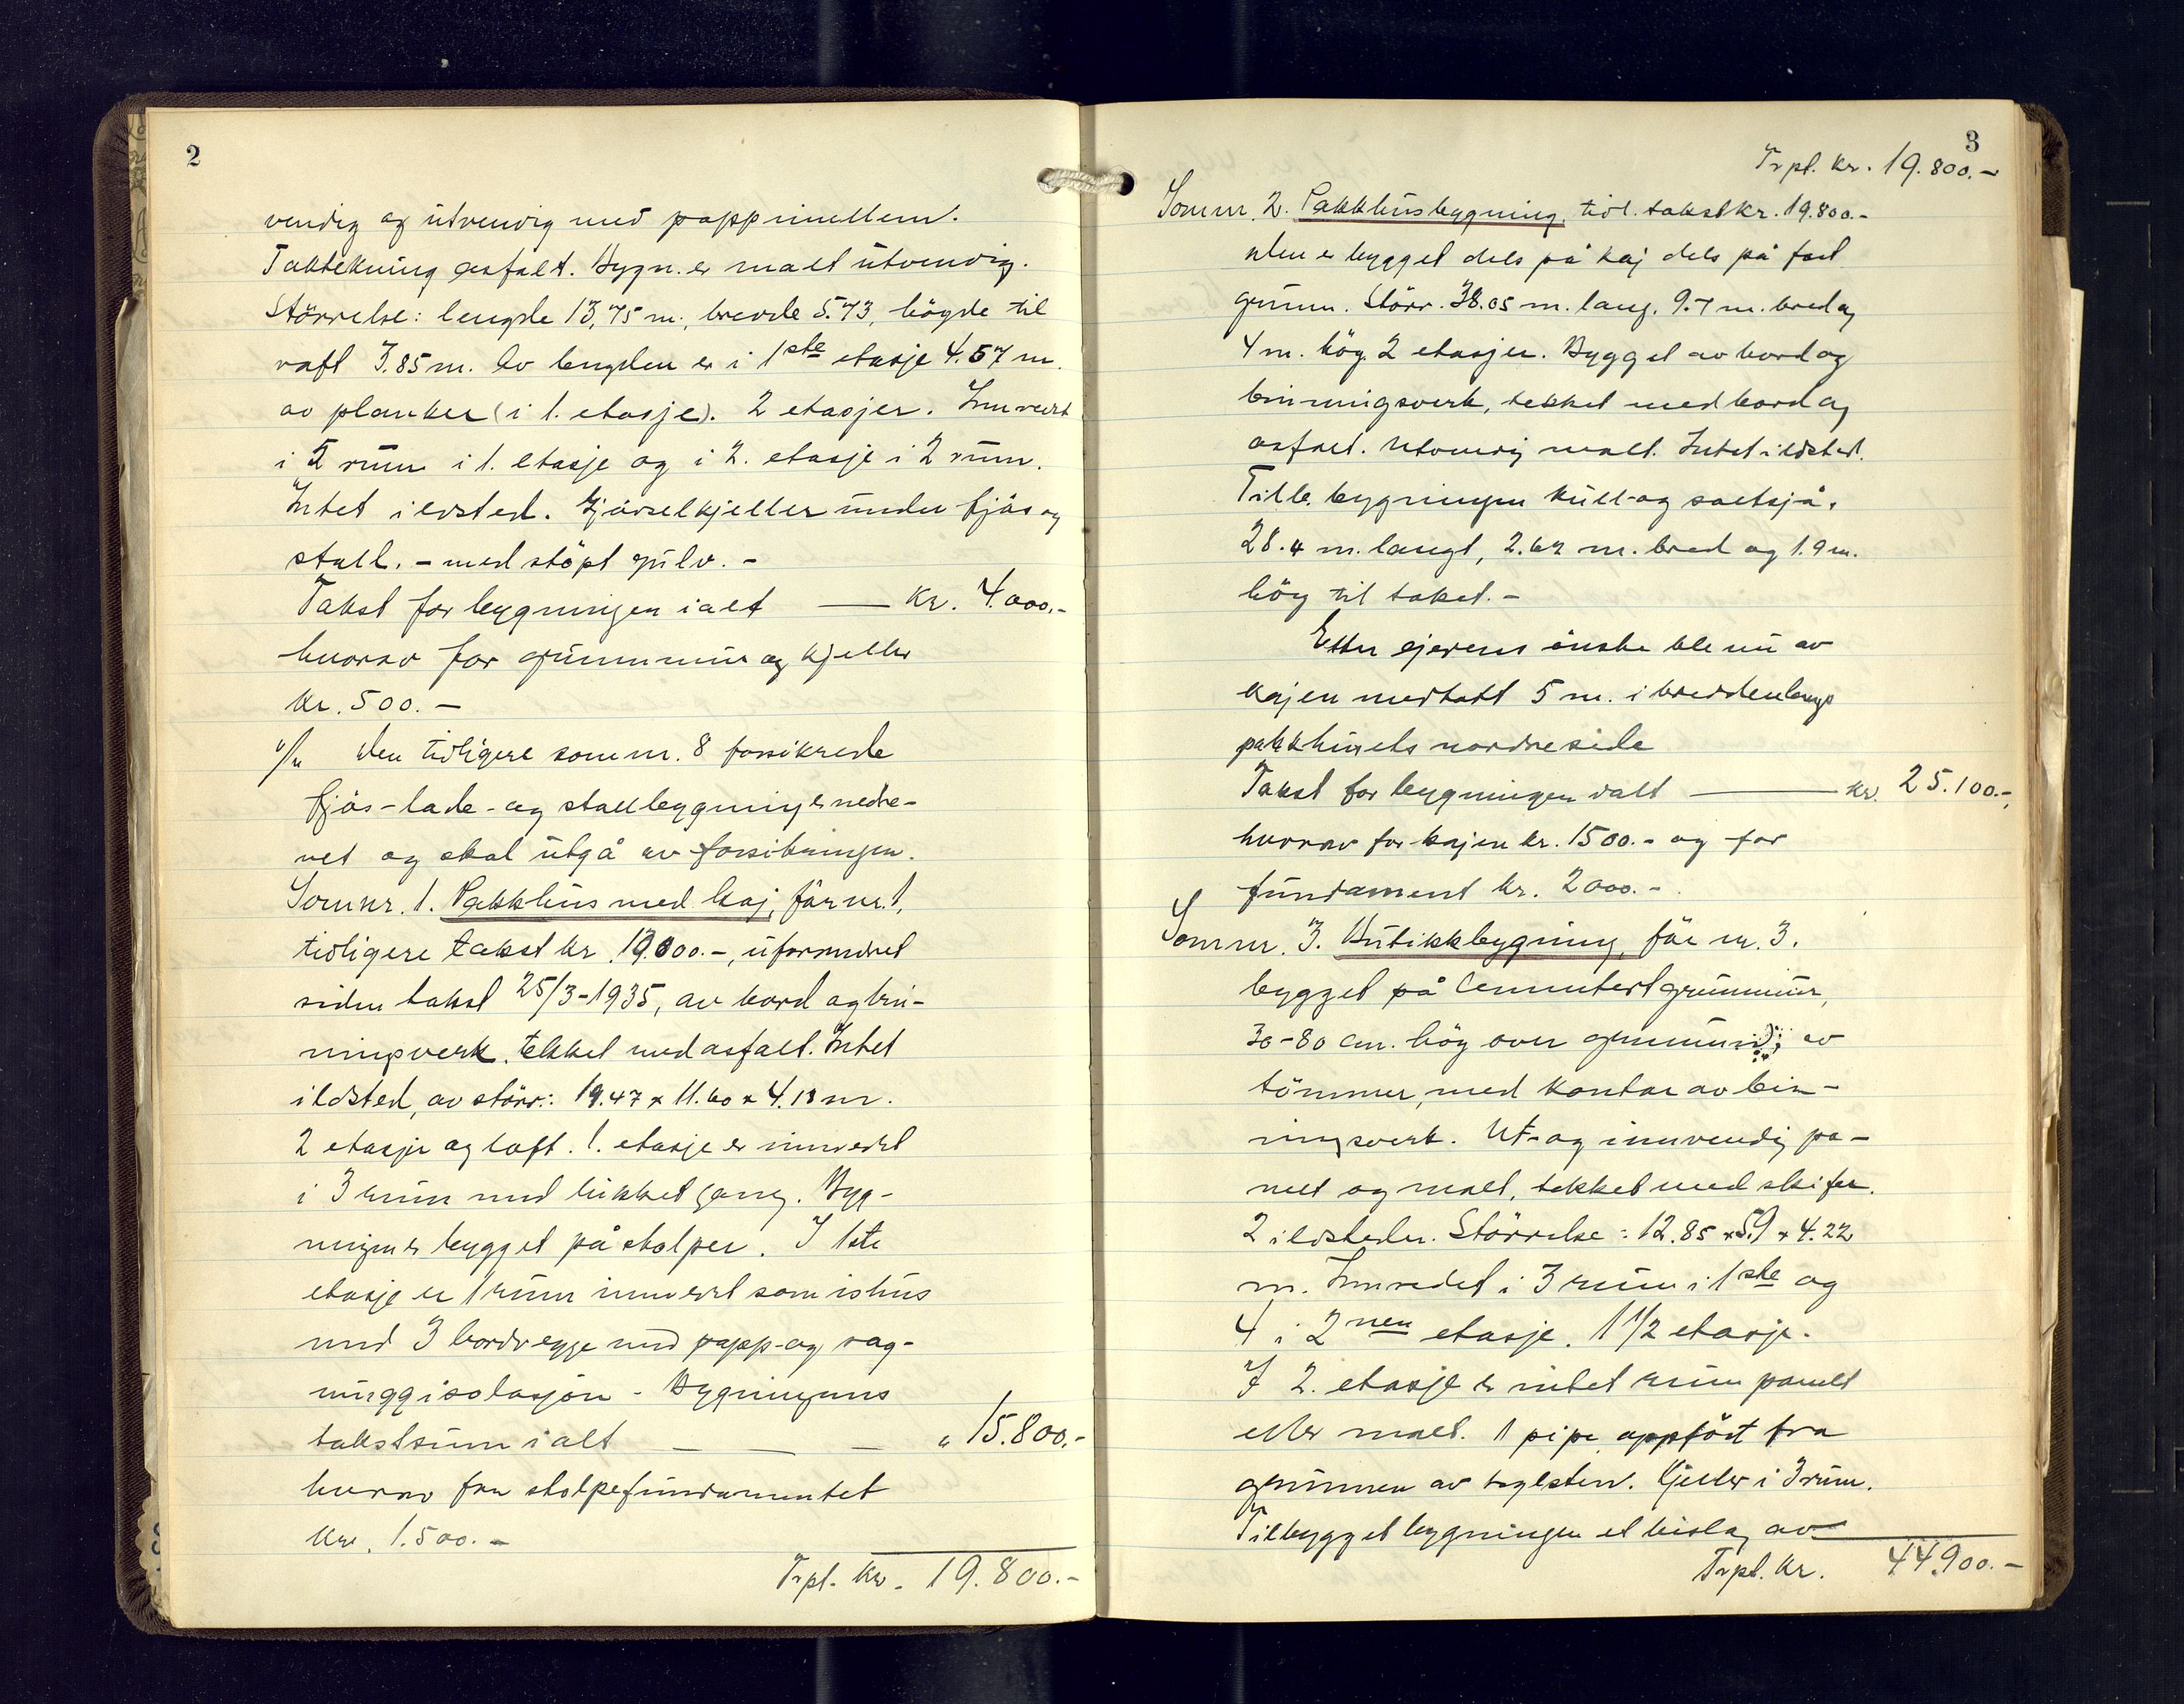 2
vendig og utvendig med papp imellem.
Taktekning asfalt. Bygn. er malt utvendig.
Störrelse: lengde 13,75 m., bredde 5.73, högde til
raft 3.85 m. Av lengden er i 1ste etasje 4.57 m.
av planker (i 1. etasje). 2 etasjer. Innredt
i 5 rum i 1. etasje og i 2. etasje i 2 rum.
Intet ildsted. Gjödselkjeller under fjös og
stall. - med stöpt gulv. -
Takst for bygningen ialt — kr. 4.000.-
hvorav for grunnmur og kjeller
kr. 500.-
Den tidligere som nr. 8 forsikrede
fjös-lade- og stallbygning er nedre-
vet og skal utgå av forsikringen.
Som nr. 1. Pakkhus med kaj, för nr. 1,
tidligere takst kr. 19.000.-, uforandret
siden takst 25/3-1935, av bord og bin-
ningsverk. tekket med asfalt. Intet
ildsted, av störr.: 19.47 x 11.60 x 4.13 m.
2 etasje og loft. 1. etasje er innredet
i 3 rum med lukket gang. Byg-
ningen er bygget på stolper. I 1ste
etasje er 1 rum innredet som ishus
med 3 bordvegge med papp- og sag-
muggisolasjon - Bygningens
takstsum ialt — — — " 15.800.-
hvorav for stolpefundamentet
kr. 1.500.-
Trpt. kr. 19.800.-
3
Trpt. kr. 19.800.-
Som nr. 2. Pakkhusbygning, tidl. takst kr. 19.800.-
Den er bygget dels på kaj dels på fast
grunn. Störr. 38.05 m. lang. 9.7 m. bred og
4 m. hög. 2 etasjer. Bygget av bord og
binningsverk, tekket med bord og
asfalt. Utvendig malt. Intet ildsted.
Till. bygningen kull- og saltsjå.
28.4 m. langt, 2.62 m. bred og 1.9 m.
hög til taket.-
Etter eierens önske ble nu av
kajen medtatt 5 m. i bredden langs
pakkhusets nordre side
Takst for bygningen ialt — kr. 25.100.-,
hvorav for kajen kr. 1500.- og for
fundament kr. 2000.-
Som nr. 3. Butikkbygning, för nr. 3.
bygget på Cementert grunnmur,
30-80 cm. hög over grunnen; av
tömmer, med kontor av bin-
ningsverk. Ut- og innvendig pa-
nelt og malt, tekket med skifer.
2 ildsteder. Störrelse: 12.85 x 5.9 x 4.22
m. Innredet i 3 rum i 1ste og
4 i 2nen etasje. 1 1/2 etasje.
I 2. etasje er intet rum panelt
eller malt. 1 pipe oppfört fra
grunnen av teglsten. Kjeller i 3 rum.
Tilbygget bygningen et bislag av
Trpt. kr. 44.900.-